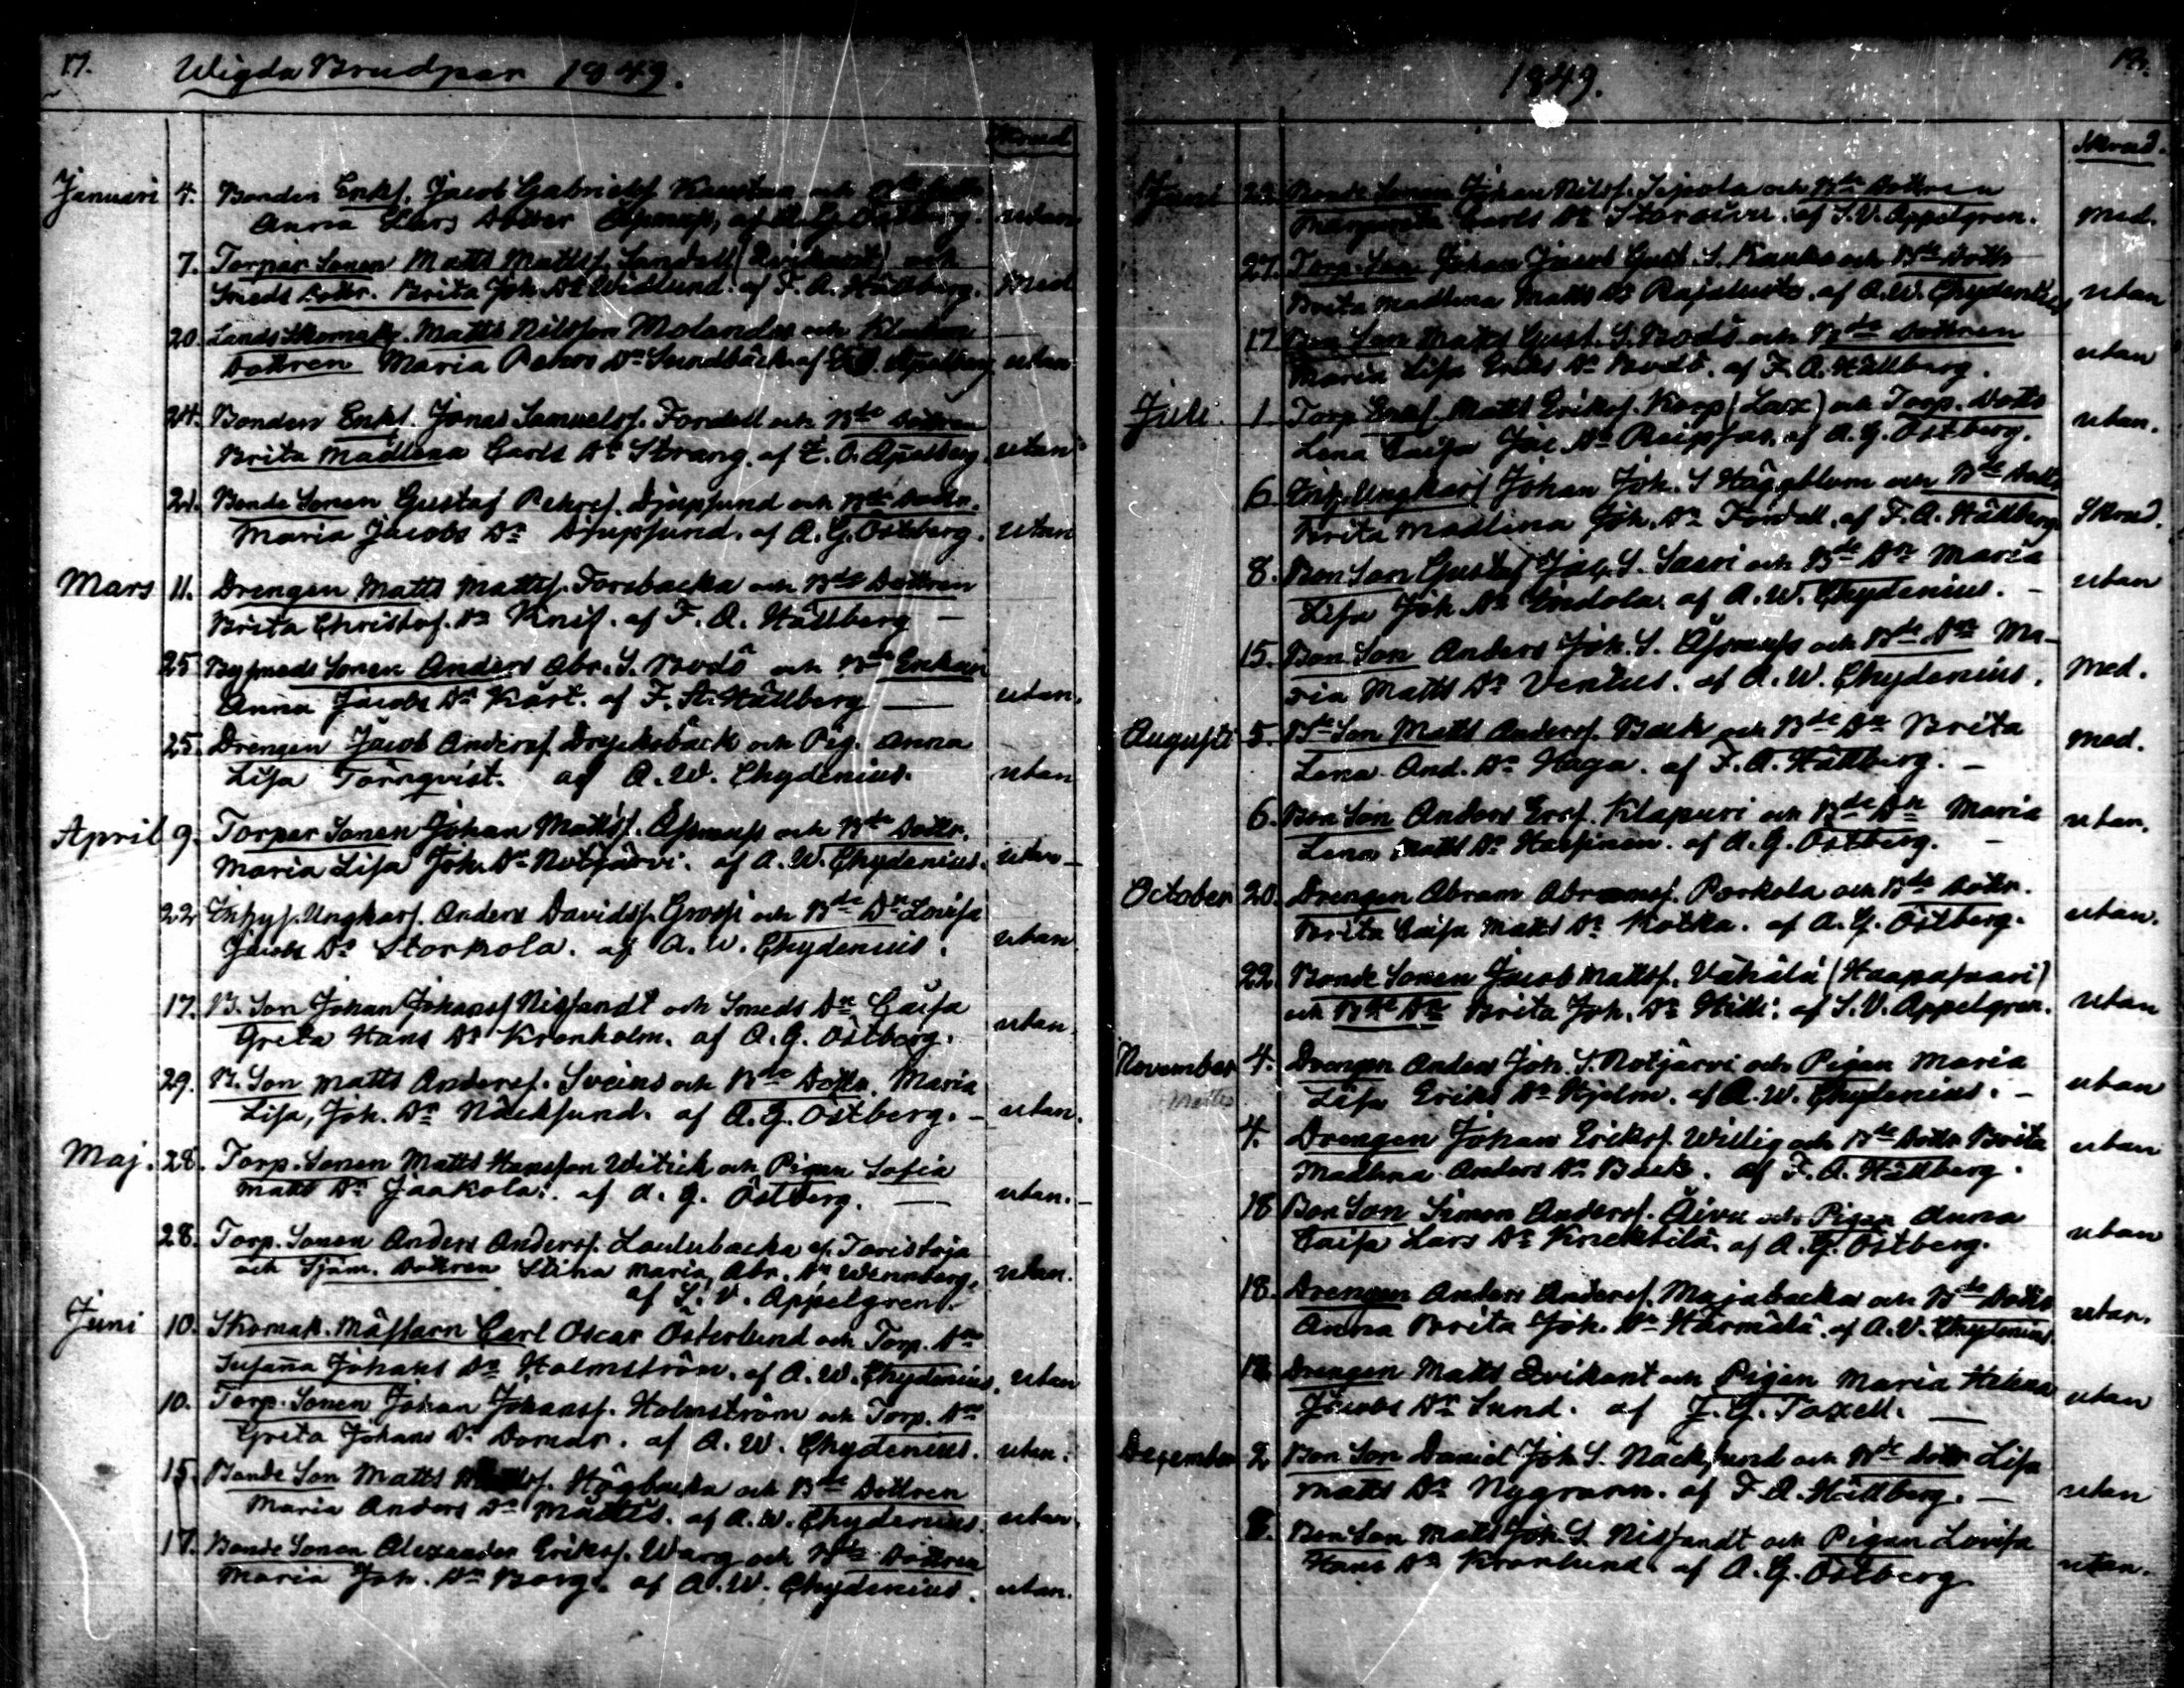 17. Wigda Brudpar 1849.
Skrud
Januari 4. Bonden Enkl. Jacob Gabrielss. och
Anna Lars Dotter utan
7. Torpar Sonen Matts Mattss. Sandell och
Smeds Dottr. Brita Joh. Dr Widlund. af F. A. Hällberg. Med
20. Lands Skomak. Matts Nilsson Molander och
Dottren Maria Pehrs Dr Sundbäck af utan
24. Bonden Enkl. Jonas Samuelss. Fordell och Bde Dottren
Brita Madlena Carls Dr Strang. af utan
21. Bonde Sonen Gustaf Pehrss. Djupsund och Bde Dottr.
Maria Jacobs Dr Djupsund. af A. G. Östberg. utan
Mars 11. Drengen Matts Mattss. Forsbacka och Bde Dottren
Brita Christof. Dr Knif. af F. A. Hällberg –
25 Bysmeds Sonen Anders Abr. S. Bodö och Enkan
Anna Jacobs Dr Kårt. af F. A. Hällberg — utan.
25. Drengen Jacob Anderss. Dryeksbäck och Pig. Anna
Lisa Törnqvist. af A. W. Chydenius. utan
April 9. Torpar Sonen Johan Mattss. Åsmuss och Bde Dottr.
Maria Lisa Joh. Dr Notjärvi. af A. W. Chydenius. utan –
22 Inhys. Ungkarl. Anders Davidss. Gross och Bde Dr Lovisa
Jacobs Dr Storkola. af A. W. Chydenius. utan
17. B. Son Johan Johanss Nissandt och Smeds Dr Caisa
Greta Hans Dr Kronholm. af A. G. Östberg. utan
29. B. Son Matts Anderss. Sveins och Bde Dottr. Maria
Lisa, Joh. Dr Näcksund. af A. G. Östberg. – utan.
Maj. 28. Torp. Sonen Matts Hansson Witick och Pigan Sofia
Matts Dr Jaakola. af A. G. Östberg. — utan. –
28. Torp. Sonen Anders Anderss. Laulubacka af
och Dottren Stina Maria Abr. Dr Wennberg, utan.
af S. V. Appelgren.
Juni 10. Skomak. Mästarn Carl Oscar Österlund och Torp. Dr
Susanna Johans Dr Holmström. af A. W. Chydenius. utan
10. Torp. Sonen Johan Johanss. Holmström och Torp. Dr
Greta Johans Dr Domar. af A. W. Chydenius. utan.
15. Bonde Son Matts Högbacka och Bde Dottren
Maria Anders Dr Mattus. af A. W. Chydenius. utan.
17. Bonde Sonen Alexander Erikss. Warg och Bde Dottren
Maria Joh. Dr Borg. af A. W. Chydenius. utan.
1849.
Skrud.
Juni Bonde Sonen Johan Nilss. Sipola och Bde Dottren
Margareta Carls Dr af S. V. Appelgren. Med.
27. Torp. Son Johan Jacob Gust. S. Kauko och Bde Dottr
Brita Madlena Matts Dr Rajaluoto. af A. W. Chydenius utan
17 Bon Son Matts Gust. S. Bodö och Bde Dottren
Maria Lisa Eriks Dr Bodö. af F. A. Hällberg. utan
Juli. 1. Torp. Enkl. Matts Erikss. Korp (Lax) och Torp. Dottr
Lena Caisa Jac Dr af A. G. Östberg. utan.
6 Inh. Ungkarl Johan Joh. S Häggblom och Bde Dottr
Brita Madlena Joh. Dr Fordell. af F. A. Hällberg. Skrud.
8. Bon Son Gustaf Jac. S. Saari och Bde Dr Maria
Lisa Joh. Dr Endola. af A. W. Chydenius. – utan
15. Bon Son Anders Joh. S. Åsmuss och Bde Dr Ma-
ria Matts Dr Ventus. af A. W. Chydenius. Med.
Augusti 5. Bde Son Matts Anderss. Back och Bde Dr Brita
Lena And. Dr Haga. af F. A. Hällberg. – Med.
6. Bon Son Anders Ers. Klapuri och Bde Dr Maria
Lena Matts Dr af A. G. Östberg. – utan.
October 20. Drengen Abram Abramss. Porkola och Bde Dottr.
Brita Caisa Matts Dr Kotka. af A. G. Östberg. utan.
22. Bonde Sonen Jacob Mattss. Vähälä (Haapasaari)
och Bde Dr Brita Joh. Dr Hilli. af S. V. Appelgren. utan
November 4. Drengen Anders Joh. S. Notjärvi och Pigan Maria
Lisa Eriks Dr Hjelm. af A. W. Chydenius. – utan
4. Drengen Johan Erikss. Willig och Bde Dottr Brita
Madlena Anders Dr Back. af F. A. Hällberg. utan
18 Bon Son Simon Anderss. Åivu och Pigan Anna
Caisa Lars Dr Knektilä. af A. G. Östberg. utan
18. Drengen Anders Anderss. Majabacka och Bde Dottr
Anna Brita Joh. Dr Härmälä. af A. W. Chydenius utan.
18. Drengen Matts Qvikant och Pigan Maria Helena
Jacobs Dr Sund. af J. G. Taxell. — utan
December 2 Bon Son Daniel Joh. S. Näcksund och Bde Dottr Lisa
Matts Dr Nygrann. af F. A. Hällberg. – utan
Bon Son Matts Joh. S. Nissandt och Pigan Lovisa
Hans Dr Kronlund. af A. G. Östberg utan.